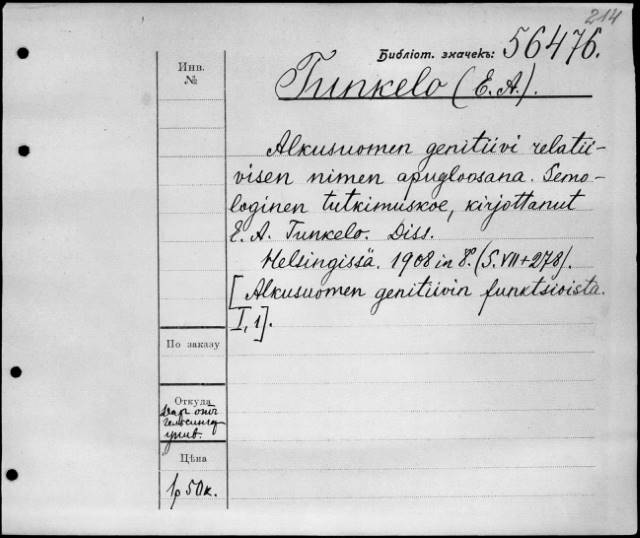 214
Библіот. значекъ: 56476.
Инв.
№
Tunkelo (E. A.).
Alkusuomen genitiivi relatii-
visen nimen apugloosana. Semo-
loginen tutkimuskoe, kirjottanut
E. A. Tunkelo. Diss.
Helsingissä. 1908 in 8º. (S. VII+278).
[Alkusuomen genitiivin funktsioista.
I, 1].
По заказу
Откуда
Даръ отъ
унив.
Цѣна
1р 50к.